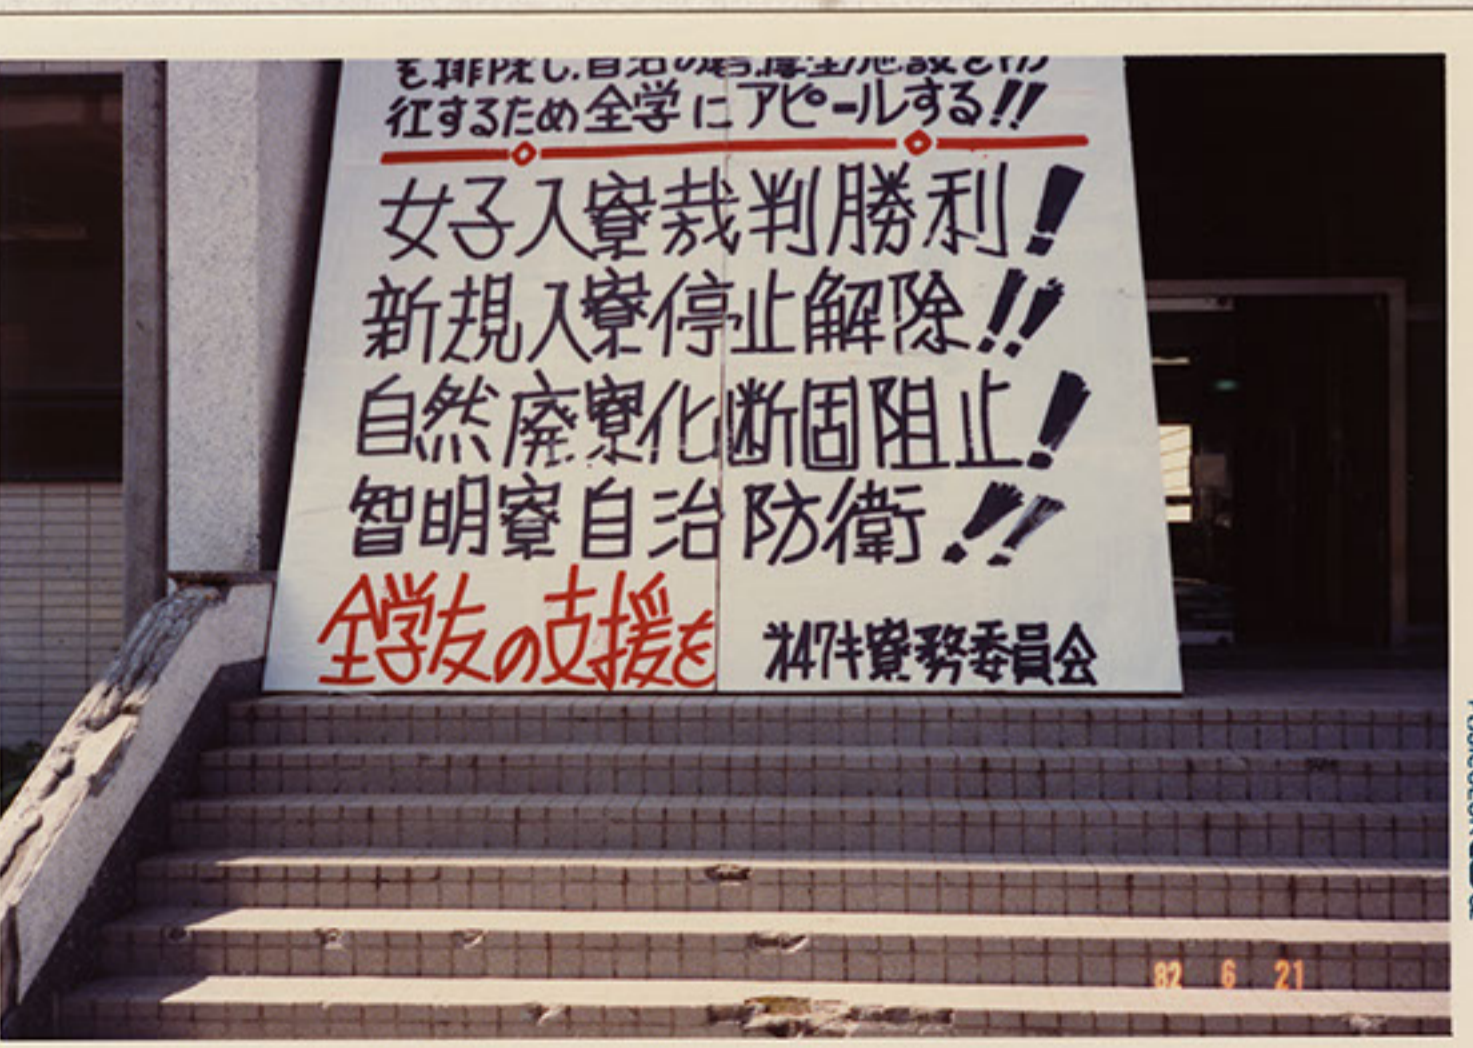 を排除し、自治の寮厚生施設を
征するため全学にアピールする!!
女子入寮裁判勝利!
新規入寮停止解除!!
自然廃寮化断固阻止!
智明寮自治防衛!!
全学友の支援を
才47キ寮務委員会
82 6 21